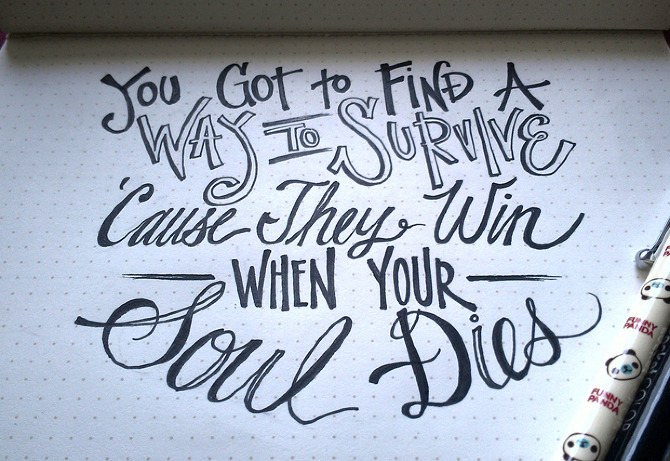 You Got to Find A
Way To Survive
'Cause They Win
When Your
Soul Dies
FUNNY
PANDA
FUNNY
PANDA